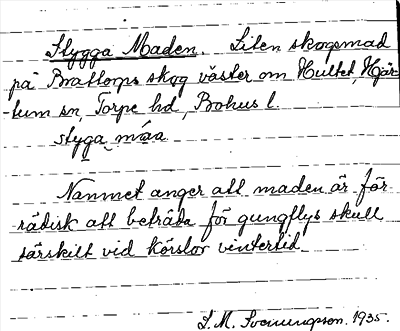 Stygga Maden. Liten skogsmad
på Brattorps skog väster om Hultet, Hjär-
tum sn, Torpe hd, Bohus l.
styga måa
Namnet anger att maden är för-
rädisk att beträda för gungflys skull
särskilt vid körslor vintertid.
S. M. Svenungsson. 1935.